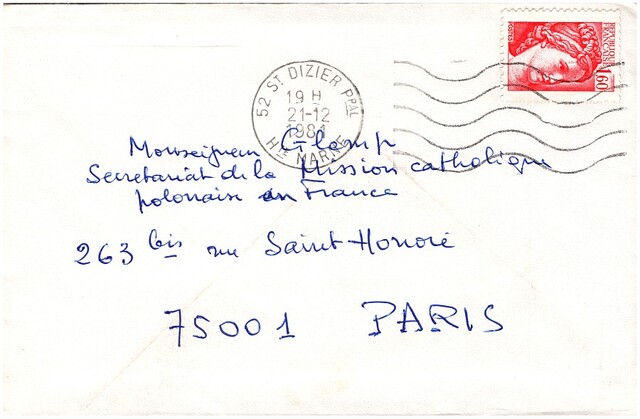 REPUBLIQUE
FRANCAISE
POSTES
1,60
52 ST DIZIER PPAL
19 H
21-12
1981
HTE MARNE
Monseigneur Glemp
Secretariat de la Mission catholique
polonaise en France
263 bis rue Saint-Honoré
75001 PARIS